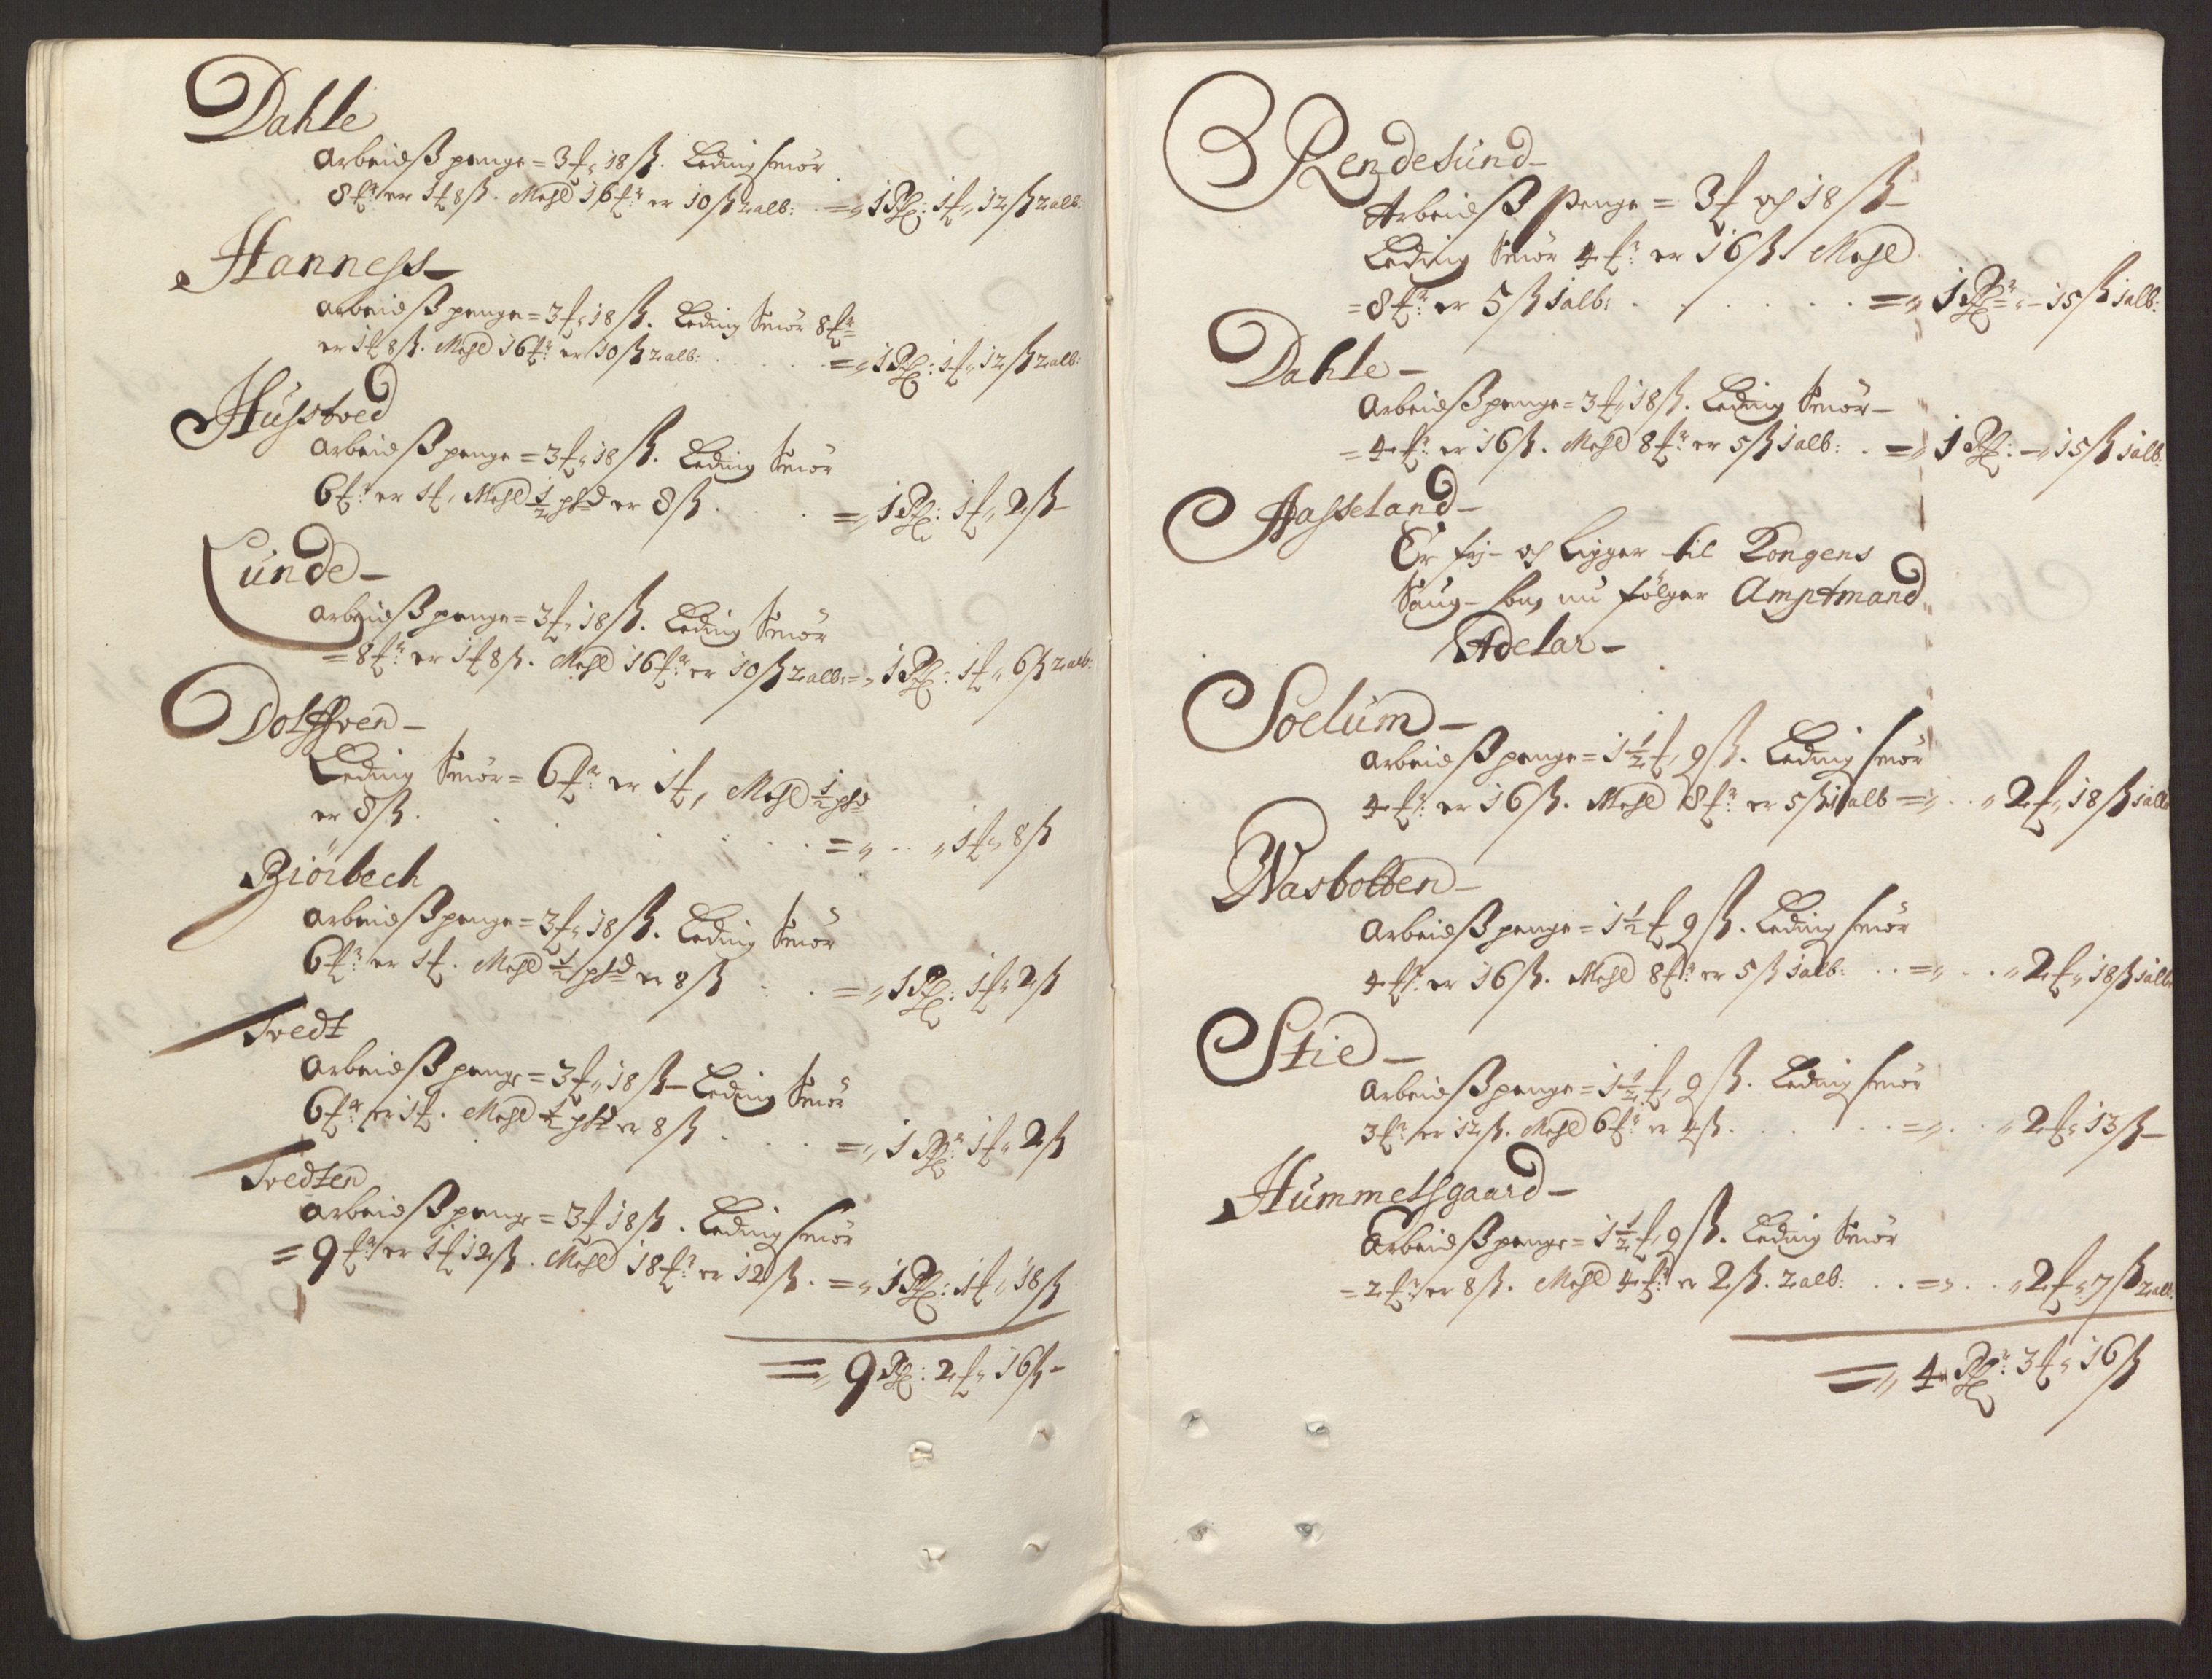 Dahle
Arbeidß penge = 3 ƒ " 18 ß. Leding smör
8 ℔r er 1 ƒ 8 ß. Mehl 16 ℔r er 10 ß 2 alb: = " 1 Rdr: 1 ƒ " 12 ß 2 alb:
Hanness
Arbeidß penge = 3 ƒ " 18 ß. Leding Smör 8 ℔r
er 1 ƒ 8 ß. Mehl 16 ℔r er 10 ß 2 alb: = " 1 Rdr: 1 ƒ " 12 ß 2 alb:
Hustved
Arbeidß penge = 3 ƒ " 18 ß. Leding Smör
6 ℔r er 1 ƒ, Mehl ½ pßd er 8 ß . . = " 1 Rdr: 1 ƒ " 2 ß
Lunde
Arbeidß penge = 3 ƒ " 18 ß. Leding Smör
= 8 ℔r er 1 ƒ 8 ß. Mehl 16 ℔r er 10 ß 2 alb: = " 1 Rdr: 1 ƒ " 6 ß 2 alb:
Dolffven
Leding Smör = 6 ℔r er 1 ƒ, Mehl ½ pßd
er 8 ß . . . = " . . " 1 ƒ " 8 ß
Biörbech
Arbeidß penge = 3 ƒ " 18 ß. Leding Smör
6 ℔r er 1 ƒ. Mehl ½ pßd er 8 ß . . = " 1 Rdr: 1 ƒ " 2 ß
Tvedt
Arbeidß penge = 3 ƒ " 18 ß Leding Smör
6 ℔r er 1 ƒ. Mehl ½ pßd er 8 ß . . = " 1 Rdr: 1 ƒ " 2 ß
Tvedten
Arbeidß penge = 3 ƒ 18 ß. Leding smör
= 9 ℔r er 1 ƒ 12 ß. Mehl 18 ℔r er 12 ß. = " 1 Rdr: 1 ƒ " 18 ß
= " 9 Rdr: 2 ƒ " 16 ß
Rendesund
Arbeidß Penge = 3 ƒ och 18 ß
Leding Smör 4 ℔r er 16 ß Mehl
= 8 ℔r er 5 ß 1 alb: . . . = " 1 Rdr: " 15 ß 1 alb:
Dahle
Arbeidß penge = 3 ƒ " 18 ß. Leding Smör
= 4 ℔r er 16 ß. Mehl 8 ℔r er 5 ß 1 alb: . = " 1 Rdr: " 15 ß 1 alb:
Hasseland
Er frj og Ligger til Kongens
Saug som nu følger Amptmand
Adelar
Soelum
Arbeidß penge = 1½ ƒ, 9 ß. Leding smör
4 ℔r er 16 ß. Mehl 8 ℔r er 5 ß 1 alb = " . . " 2 ƒ " 18 ß 1 alb
Wasbotten
Arbeidß penge = 1½ ƒ 9 ß. Leding smör
4 ℔r er 16 ß. Mehl 8 ℔r er 5 ß 1 alb: . . = " . . " 2 ƒ " 18 ß 1 alb:
Stie
Arbeidß penge = 1½ ƒ, 9 ß. Leding smör
3 ℔r er 12 ß. Mehl 6 ℔r er 4 ß. . . . = " . . " 2 ƒ " 13 ß
Hummelsgaard
Arbeidß penge = 1½ ƒ, 9 ß. Leding Smör
= 2 ℔r er 8 ß. Mehl 4 ℔r er 2 ß. 2 alb: . . = " . . " 2 ƒ " 7 ß 2 alb:
= " 4 Rdr: 3 ƒ " 16 ß